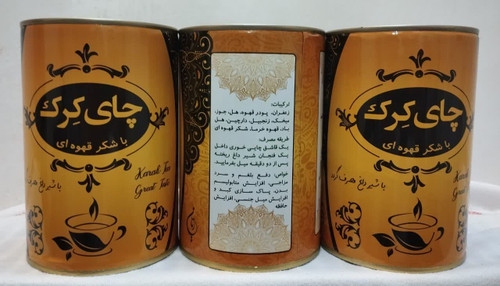 چای کرک
با شکر قهوه ای
Karak Tea
Great Taste
با شیر داغ صرف
ترکیبات:
زعفران، پودر قهوه، هل، جوز،
میخک، زنجبیل، دارچین، هل
باد، قهوه خرما، شکر قهوه ای
طریقه مصرف:
یک قاشق چایی خوری داخل
یک فنجان شیر داغ ریخته
پس از دو دقیقه میل بفرمایید.
خواص: دفع بلغم و سرد
مزاجی، افزایش متابولیسم
بدن، پاک سازی کبد و
افزایش میل جنسی، افزایش
حافظه
چای کرک
با شکر قهوه ای
Karak
Great
با شیر داغ صرف گردد